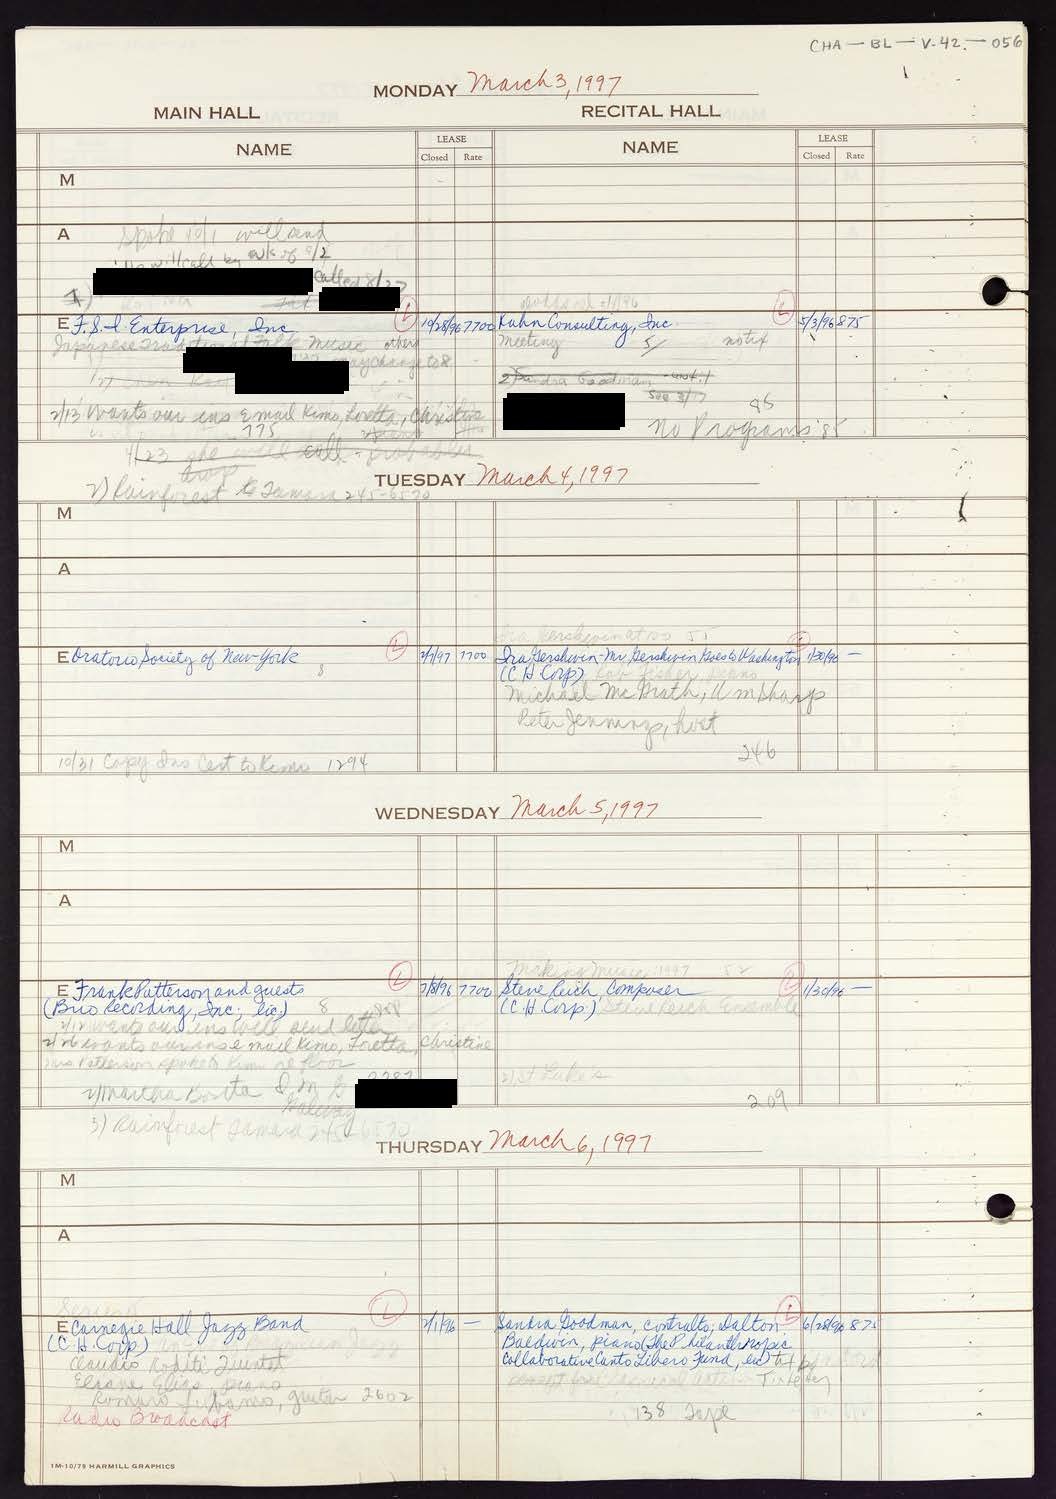 CHA-BL-V.42.-056
MONDAY March 3, 1997
MAIN HALL
RECITAL HALL
NAME
LEASE
Closed Rate
NAME
LEASE
Closed Rate
M
A
Spoke 10/1 will send
will call by wk of 9/2
called 8/27
1)
E F.S.I. Enterprise, Inc. L 10/28/96 7700
Japanese Traditional Folk Music others
may change to 8
2/13 Wants our ins Email Kimo, Loretta, Christine
775
4/23 she will call - probably
drop
2) Rainforest to Tamara 245-6570
Kahn Consulting, Inc. L 5/3/96 875
Meeting 5/ no tix
2) Sandra Goodman
see 3/17
85
No Programs 85
TUESDAY March 4, 1997
M
A
E Oratorio Society of New-York L 2/7/97 7700
8
10/31 Copy Ins Cert to Kimo 1294
Ira Gershwin at 100 55
Ira Gershwin-Mr. Gershwin Goes to Washington L 1/30/96 —
(C.H. Corp)
Michael McGrath,
Peter Jennings, host
246
WEDNESDAY March 5, 1997
M
A
E Frank Patterson and guests L 7/8/96 7700
(Brio Recording, Inc; lic) 8
2/12 wants our ins will send letter
2/26 wants our ins email Kimo, Loretta, Christine
Mrs Patterson spoke to Kimo re floor
2282
2) Martha Bosta
Galway
3) Rainforest Tamara 245-6570
Making Music: 1997 52
Steve Reich, Composer L 1/30/96 —
(C.H. Corp.) Steve Reich Ensemble
2) St Luke's
209
THURSDAY March 6, 1997
M
A
Series
E Carnegie Hall Jazz Band L 2/1/96 —
(C.H. Corp)
Claudio Roditi Quintet
Eliane Elias, piano
Romero Lubambo, guitar 2602
Radio Broadcast
Sandra Goodman, contralto; Dalton L 6/28/96 875
Baldwin, piano (The Philanthropic
Collaborative Canto Libero Fund, lic) tix
138 Tape
1M-10/79 HARMILL GRAPHICS